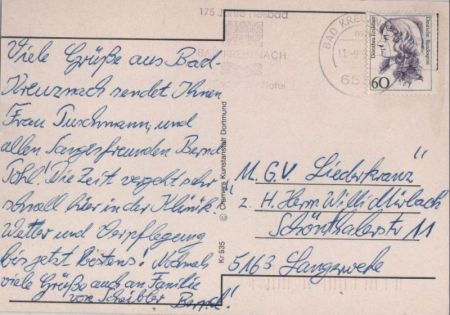 Viele Grüße aus Bad-
Kreuznach sendet Ihnen
Frau Tuschmann, und
allen Sangesfreunden Bernd
Pohl! Die Zeit vergeht sehr
schnell hier in der Klinik.
Wetter und Verpflegung
bis jetzt bestens! Nochmals
viele Grüße auch an Familie
von Scheibler Bernd!
175 Jahre Heilbad
BAD KREUZNACH
BAD KREU
65
Dorothea Erxleben
Deutsche Bundespost
60
© Cramers Kunstanstalt Dortmund
Kr 535
"M.G.V. Liederkranz"
z. H. Herrn Willi Mürbach
Schönthalerstr 11
5163 Langerwehe